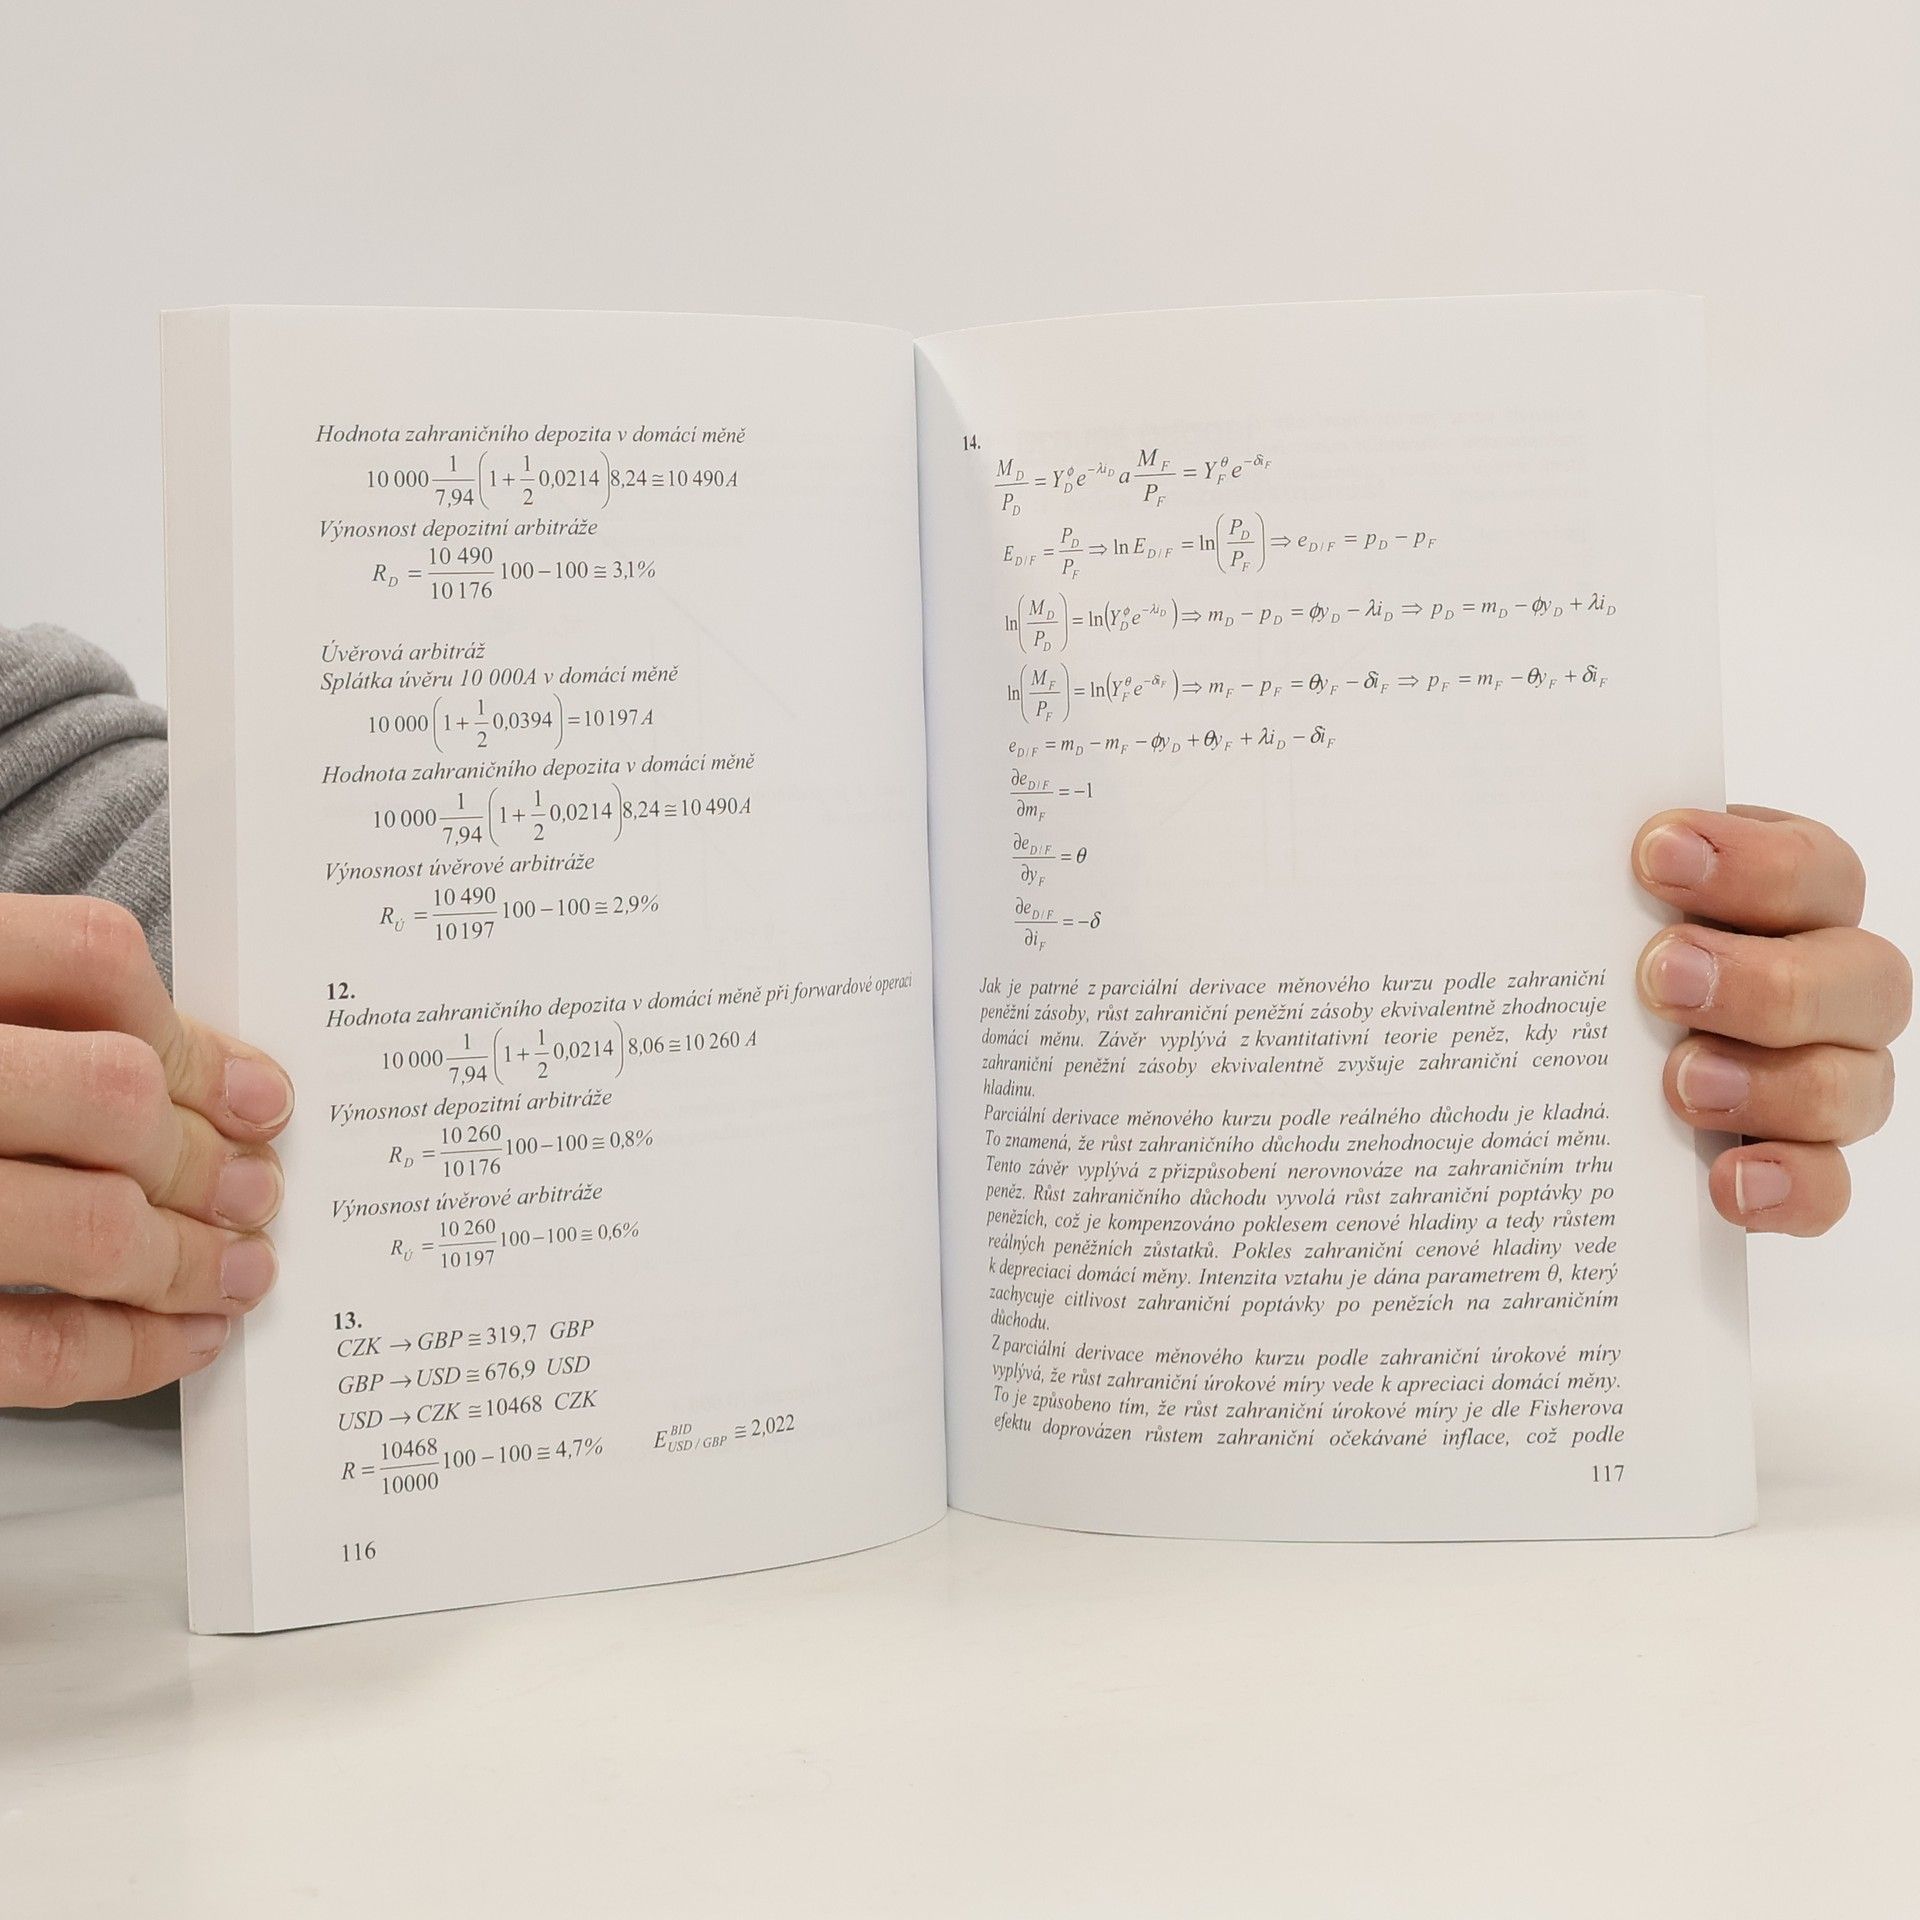 Hodnota zahraničního depozita v domácí měně
10 000 1/7,94 (1 + 1/2 0,0214) 8,24 ≅ 10 490 A
Výnosnost depozitní arbitráže
R_D = 10 490/10 176 100 − 100 ≅ 3,1%
Úvěrová arbitráž
Splátka úvěru 10 000A v domácí měně
10 000 (1 + 1/2 0,0394) = 10 197 A
Hodnota zahraničního depozita v domácí měně
10 000 1/7,94 (1 + 1/2 0,0214) 8,24 ≅ 10 490 A
Výnosnost úvěrové arbitráže
R_Ú = 10 490/10 197 100 − 100 ≅ 2,9%
12.
Hodnota zahraničního depozita v domácí měně při forwardové operaci
10 000 1/7,94 (1 + 1/2 0,0214) 8,06 ≅ 10 260 A
Výnosnost depozitní arbitráže
R_D = 10 260/10 176 100 − 100 ≅ 0,8%
Výnosnost úvěrové arbitráže
R_Ú = 10 260/10 197 100 − 100 ≅ 0,6%
13.
CZK → GBP ≅ 319,7 GBP
GBP → USD ≅ 676,9 USD
USD → CZK ≅ 10468 CZK
R = 10468/10000 100 − 100 ≅ 4,7% E^BID_USD/GBP ≅ 2,022
116
14.
M_D/P_D = Y_D^ϕ e^−λi_D a M_F/P_F = Y_F^θ e^−δi_F
E_D/F = P_D/P_F ⇒ ln E_D/F = ln(P_D/P_F) ⇒ e_D/F = p_D − p_F
ln(M_D/P_D) = ln(Y_D^ϕ e^−λi_D) ⇒ m_D − p_D = ϕy_D − λi_D ⇒ p_D = m_D − ϕy_D + λi_D
ln(M_F/P_F) = ln(Y_F^θ e^−δi_F) ⇒ m_F − p_F = θy_F − δi_F ⇒ p_F = m_F − θy_F + δi_F
e_D/F = m_D − m_F − ϕy_D + θy_F + λi_D − δi_F
∂e_D/F/∂m_F = −1
∂e_D/F/∂y_F = θ
∂e_D/F/∂i_F = −δ
Jak je patrné z parciální derivace měnového kurzu podle zahraniční
peněžní zásoby, růst zahraniční peněžní zásoby ekvivalentně zhodnocuje
domácí měnu. Závěr vyplývá z kvantitativní teorie peněz, kdy růst
zahraniční peněžní zásoby ekvivalentně zvyšuje zahraniční cenovou
hladinu.
Parciální derivace měnového kurzu podle reálného důchodu je kladná.
To znamená, že růst zahraničního důchodu znehodnocuje domácí měnu.
Tento závěr vyplývá z přizpůsobení nerovnováze na zahraničním trhu
peněz. Růst zahraničního důchodu vyvolá růst zahraniční poptávky po
penězích, což je kompenzováno poklesem cenové hladiny a tedy růstem
reálných peněžních zůstatků. Pokles zahraniční cenové hladiny vede
k depreciaci domácí měny. Intenzita vztahu je dána parametrem θ, který
zachycuje citlivost zahraniční poptávky po penězích na zahraničním
důchodu.
Z parciální derivace měnového kurzu podle zahraniční úrokové míry
vyplývá, že růst zahraniční úrokové míry vede k apreciaci domácí měny.
To je způsobeno tím, že růst zahraniční úrokové míry je dle Fisherova
efektu doprovázen růstem zahraniční očekávané inflace, což podle
117